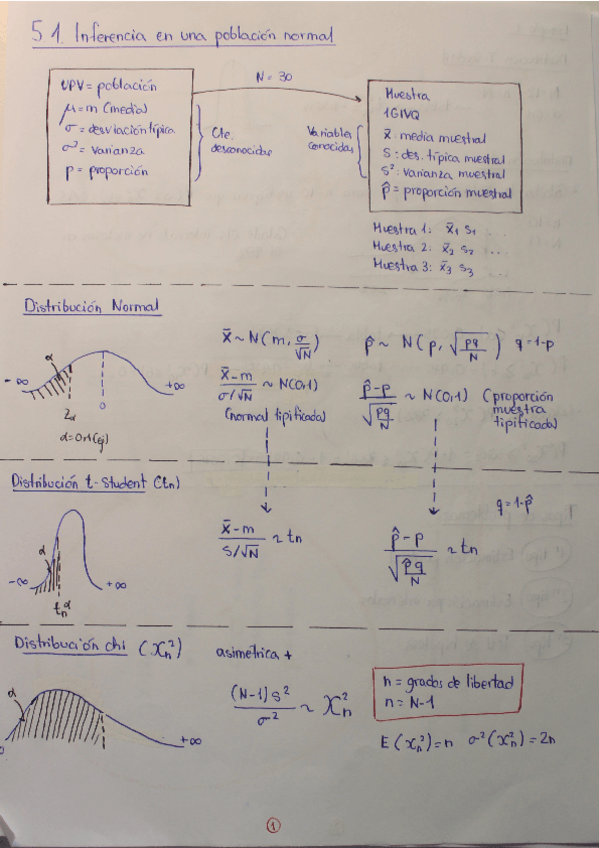 5 1. Inferencia en una población normal
N = 30
UPV = población
μ = m (media)
σ = desviación típica
σ² = varianza
p = proporción
Cte. desconocidas
Variables conocidas
Muestra
1GIVQ
x̄: media muestral
S: des. típica muestral
S²: varianza muestral
p̂ = proporción muestral
Muestra 1: x̄₁ s₁ ...
Muestra 2: x̄₂ s₂ ...
Muestra 3: x̄₃ s₃ ...
Distribución Normal
α
-∞ +∞
Zα 0
α = 0'1 (ej)
x̄ ~ N(m, σ/√N)
(x̄-m)/(σ/√N) ~ N(0,1)
(normal tipificada)
p̂ ~ N(p, √(pq/N)) q = 1-p
(p̂-p)/√(pq/N) ~ N(0,1) (proporción muestra tipificada)
Distribución t-Student (tn)
α
-∞ +∞
tₙ^α
(x̄-m)/(S/√N) ~ tn
q = 1-p̂
(p̂-p)/√(p̂q/N) ~ tn
Distribución chi (χₙ²) asimetrica +
α
0 +∞
(N-1)S²/σ² ~ χₙ²
n = grados de libertad
n = N-1
E(χₙ²) = n σ²(χₙ²) = 2n
1